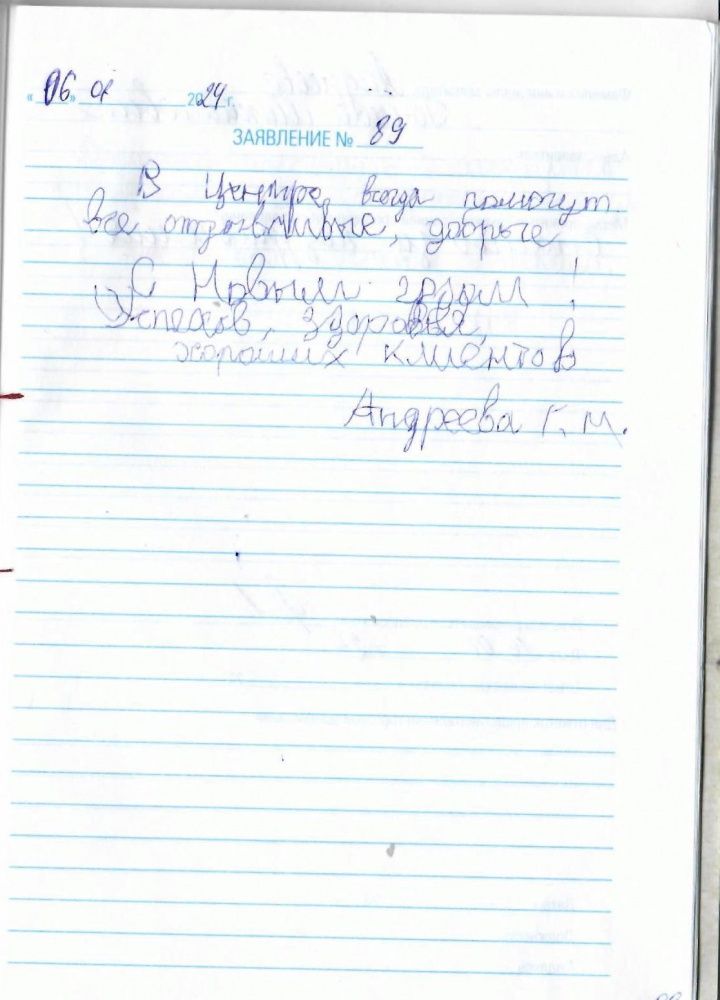 «06» 01 2024 г.
ЗАЯВЛЕНИЕ № 89
В Центре всегда помогут.
Все отзывчивые, добрые
С Новым годом!
Успехов, здоровья,
хороших клиентов
Андреева Г. М.